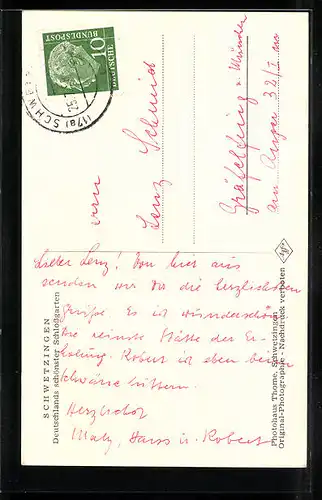 SCHWETZINGEN
Deutschlands schönster Schloßgarten
Lieber Lenz! Von hier aus
senden wir Dir die herzlichsten
Grüße. Es ist wunderschön
die reinste Stätte der Er-
holung. Robert ist eben beim
Schwäne füttern.
Herzlichst
Matz, Hans u. Robert
Photohaus Thome, Schwetzingen
Original-Photographie - Nachdruck verboten
DEUTSCHE
BUNDESPOST
10
(17a) SCHWE
Herrn
Lenz Schmid
Gräfelfing b. München
am Anger 32/I